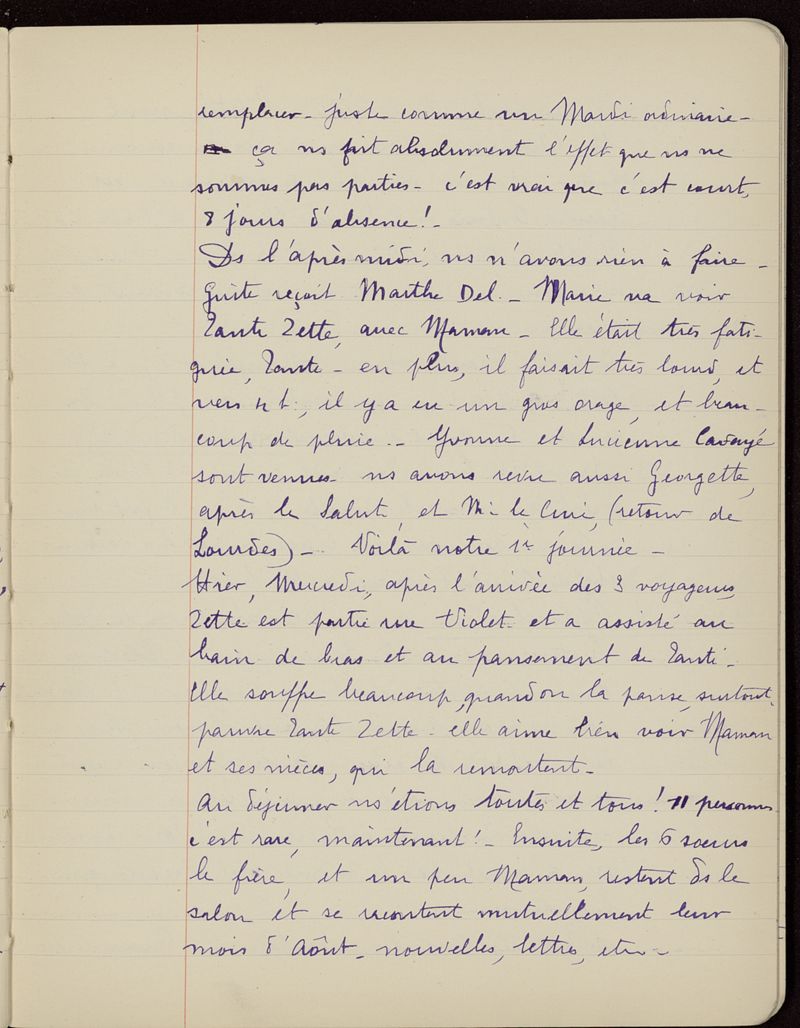 remplacer - juste comme un Mardi ordinaire -
ça ns fait absolument l'effet que ns ne
sommes pas parties - c'est vrai que c'est court,
8 jours d'absence ! -
Ds l'après midi, ns n'avons rien à faire -
Guite reçoit Marthe Del. - Marie va voir
Tante Zette, avec Maman - Elle était très fati-
guée, Tante - en plus, il faisait très lourd, et
vers 4 h., il y a eu un gros orage, et beau-
coup de pluie. - Yvonne et Lucienne Cavayé
sont venues - ns avons revu aussi Georgette,
après le Salut, et Mr le Curé, (retour de
Lourdes) - Voilà notre 1re journée -
Hier, Mercredi, après l'arrivée des 3 voyageurs,
Zette est partie rue Violet - et a assisté au
bain de bras et au pansement de Tante -
Elle souffre beaucoup, quand on la panse, surtout,
pauvre Tante Zette - elle aime bien voir Maman
et ses nièces, qui la remontent -
Au déjeuner ns étions toutes et tous ! 11 personnes
c'est rare, maintenant ! - Ensuite, les 6 sœurs
le frère, et un peu Maman, restent ds le
salon et se racontent mutuellement leur
mois d'Août - nouvelles, lettres, etc -